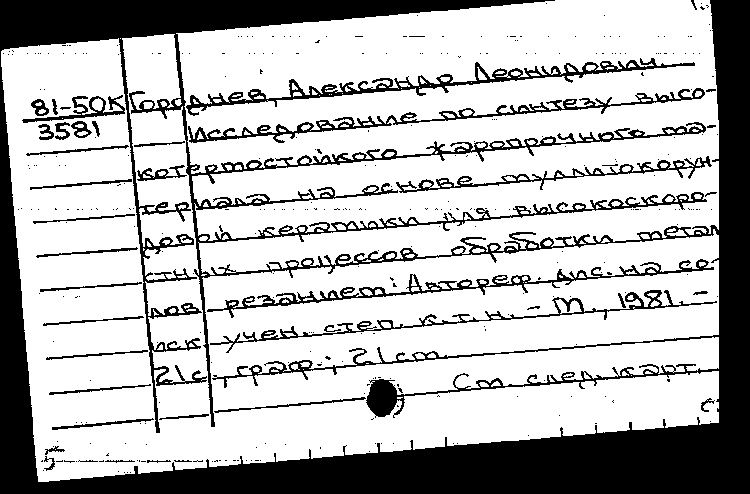 81-50К Городнев, Александр Леонидович.
3581 Исследование по синтезу высо-
котермостойкого жаропрочного ма-
териала на основе муллитокорун-
довой керамики для высокоскоро-
стных процессов обработки метал
лов резанием: Автореф. дис. на со-
иск. учен. степ. к.т.н. - М., 1981. -
21 с., граф.; 21 см.
См. след. карт.
5